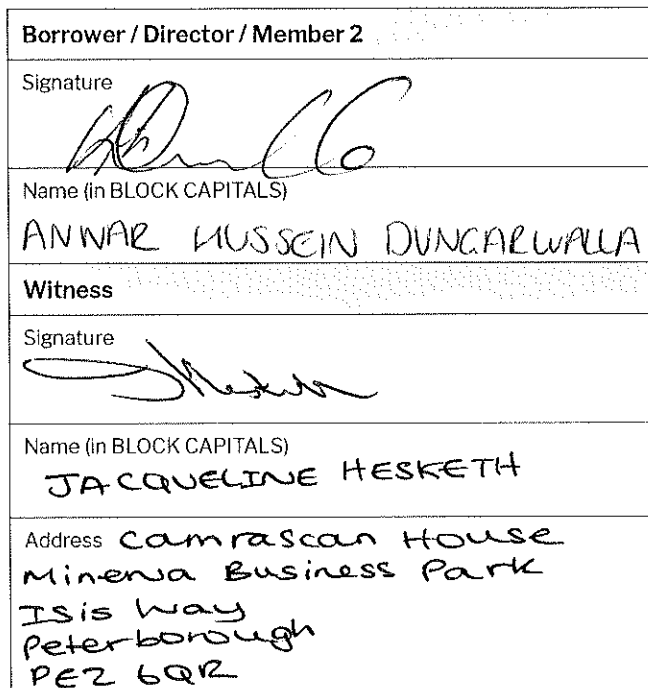 Borrower / Director / Member 2
Signature
Name (in BLOCK CAPITALS)
ANWAR HUSSEIN DUNGARWALLA
Witness
Signature
Name (in BLOCK CAPITALS)
JACQUELINE HESKETH
Address Camrascan House
Minerva Business Park
Isis Way
Peterborough
PE2 6QR